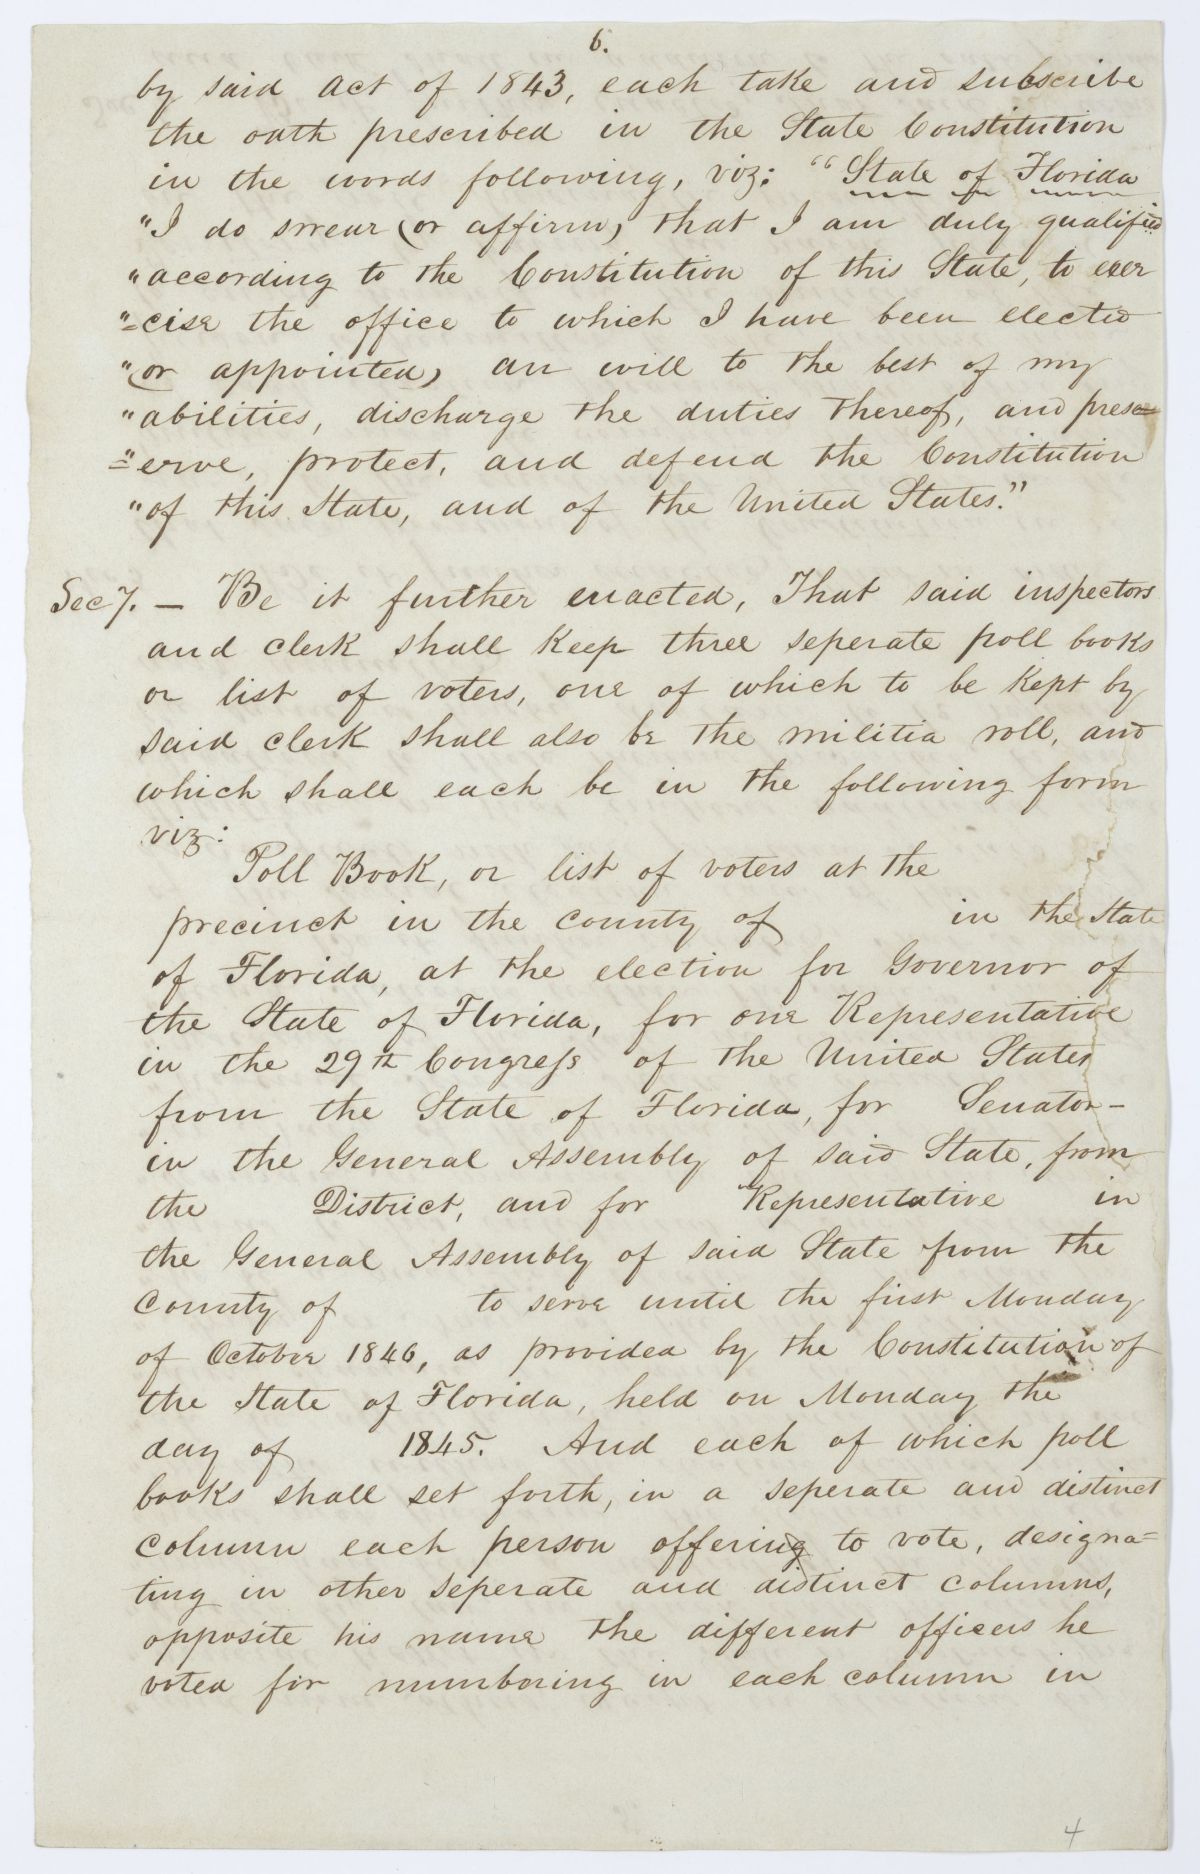 6.
by said act of 1843, each take and subscribe
the oath prescribed in the State Constitution
in the words following, viz: "State of Florida
"I do swear (or affirm) that I am duly qualified
"according to the Constitution of this State, to exer
"=cise the office to which I have been elected
"(or appointed) an will to the best of my
"abilities, discharge the duties thereof, and prese=
"=erve, protect, and defend the Constitution
"of this State, and of the United States."
Sec 7. — Be it further enacted, That said inspectors
and clerk shall keep three seperate poll books
or list of voters, one of which to be kept by
said clerk shall also be the militia roll, and
which shall each be in the following form
viz:
Poll Book, or list of voters at the
precinct in the county of in the State
of Florida, at the election for Governor of
the State of Florida, for one Representative
in the 29th Congress of the United States
from the State of Florida, for Senator-
in the General Assembly of said State, from
the District, and for Representative in
the General Assembly of said State from the
County of to serve until the first Monday
of October 1846, as provided by the Constitution of
the State of Florida, held on Monday the
day of 1845. And each of which poll
books shall set forth, in a seperate and distinct
column each person offering to vote, designa=
ting in other seperate and distinct columns,
opposite his name the different officers he
voted for numboring in each column in
4